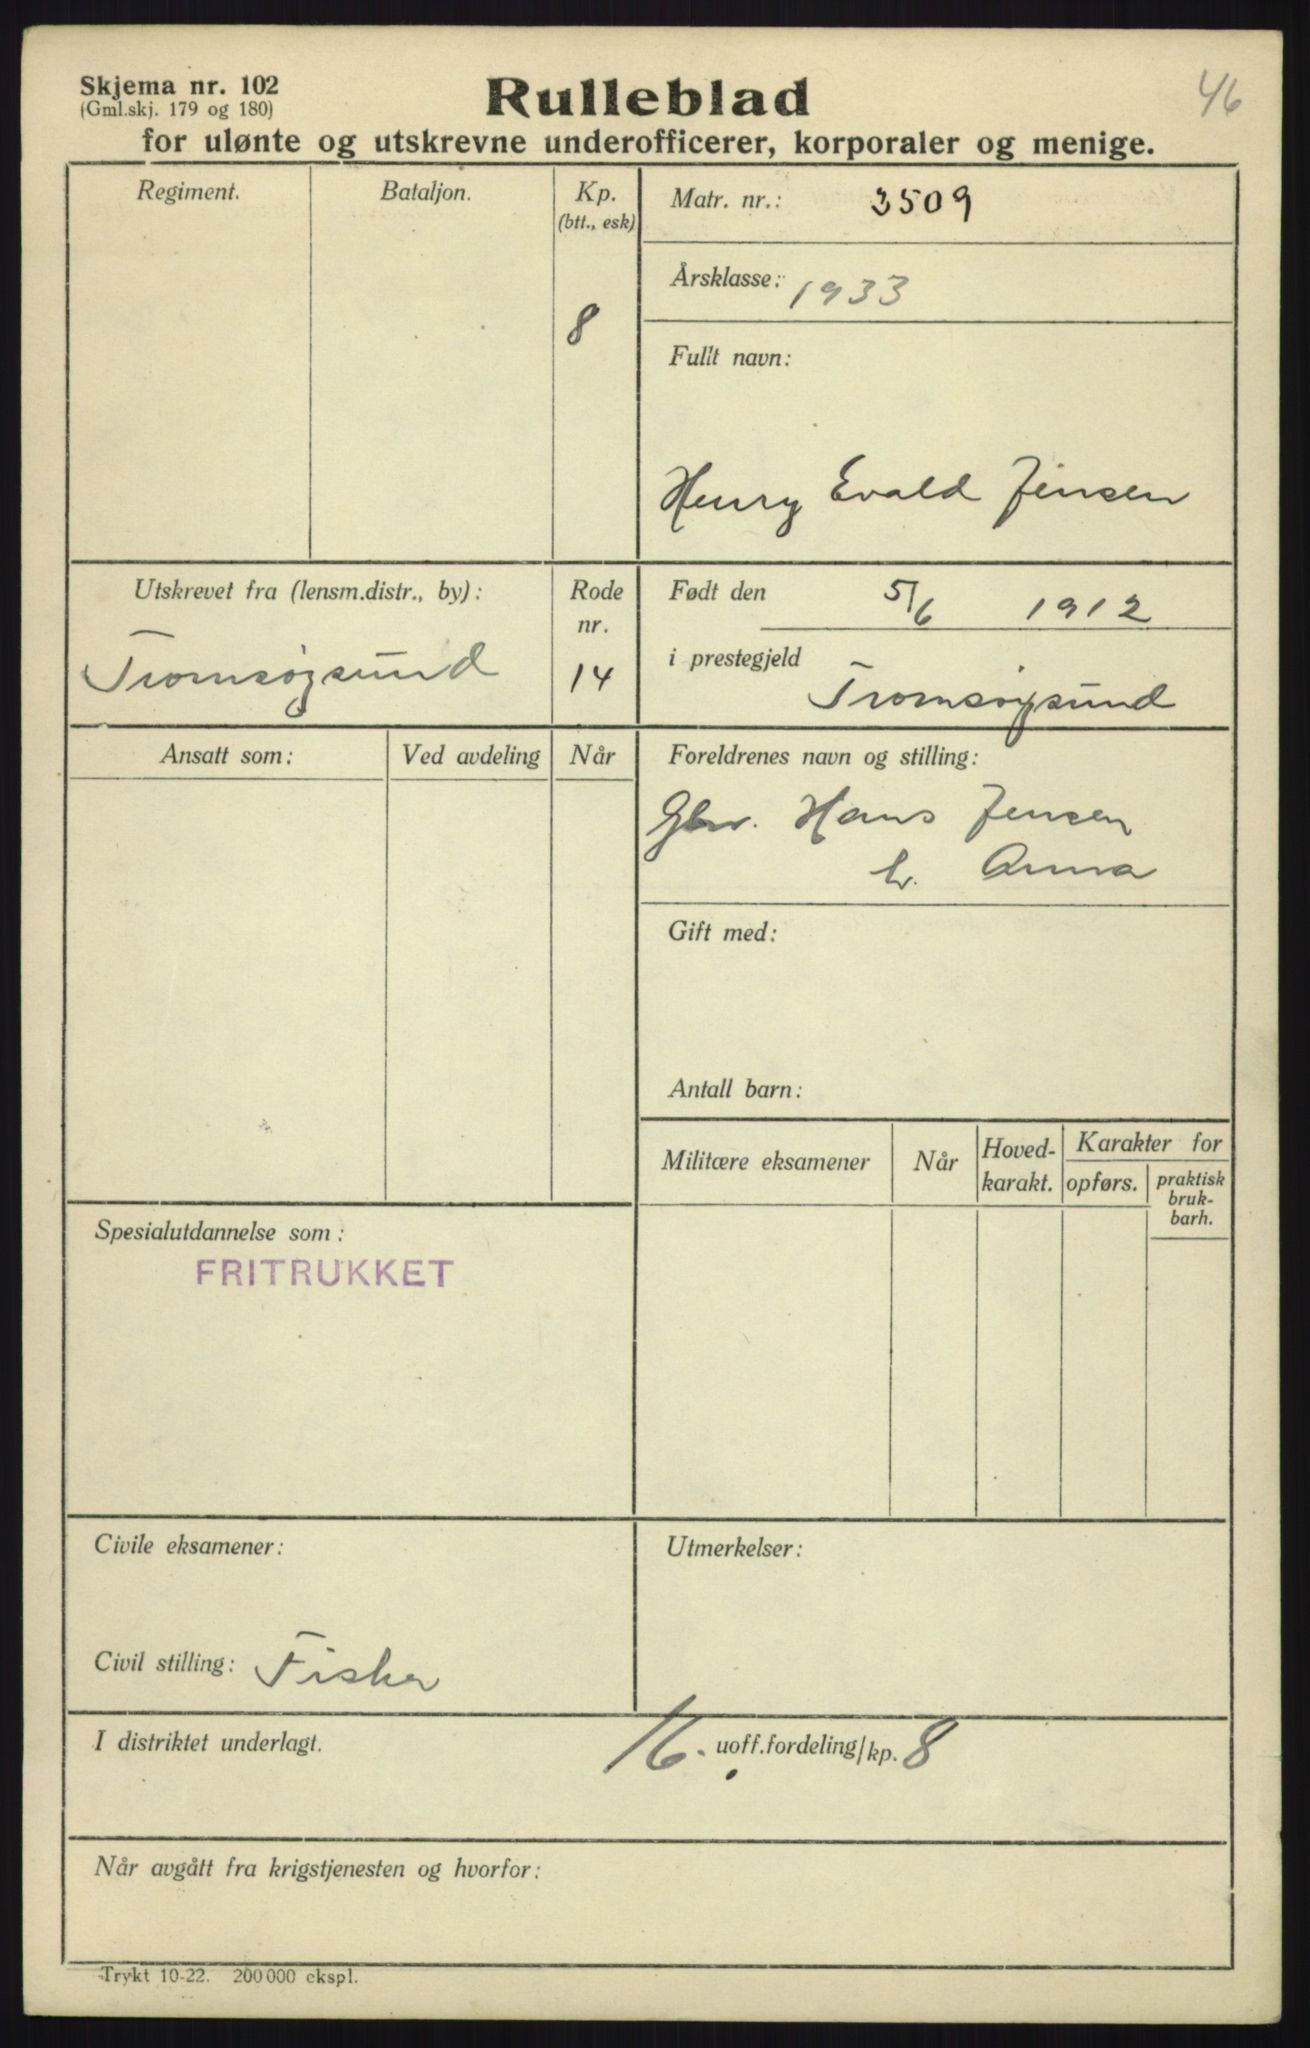 46
Skjema nr. 102
(Gml.skj. 179 og 180)
Rulleblad
for ulønte og utskrevne underofficerer, korporaler og menige.
Regiment.
Bataljon.
Kp.
(btt., esk)
8
Matr. nr.: 3509
Årsklasse: 1933
Fullt navn:
Henry Evald Jensen
Utskrevet fra (lensm.distr., by):
Tromsøysund
Rode
nr.
14
Født den 5/6 1912
i prestegjeld Tromsøysund
Ansatt som:
Ved avdeling
Når
Foreldrenes navn og stilling:
Gbr. Hans Jensen
h. Anna
Gift med:
Antall barn:
Militære eksamener
Når
Hoved-
karakt.
Karakter for
opførs.
praktisk
bruk-
barh.
Spesialutdannelse som:
FRITRUKKET
Civile eksamener:
Civil stilling: Fisker
Utmerkelser:
I distriktet underlagt. 16. uoff.fordeling/kp. 8
Når avgått fra krigstjenesten og hvorfor:
Trykt 10-22. 200 000 ekspl.